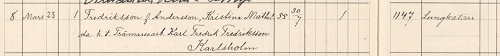 8 Mars 23 1 Fredriksson f. Andersson, Kristina Mathil- 35 30/7 1 1147 Lungkatarr
da h. t. Trämassearb. Karl Fredrik Fredriksson
Karlsholm